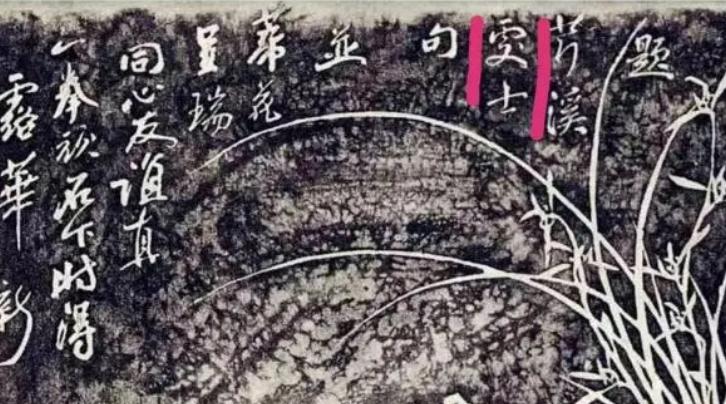 題
芹溪
處士
句
並
蒂花
呈瑞
同心友誼真
一拳頑石下時得
露華新